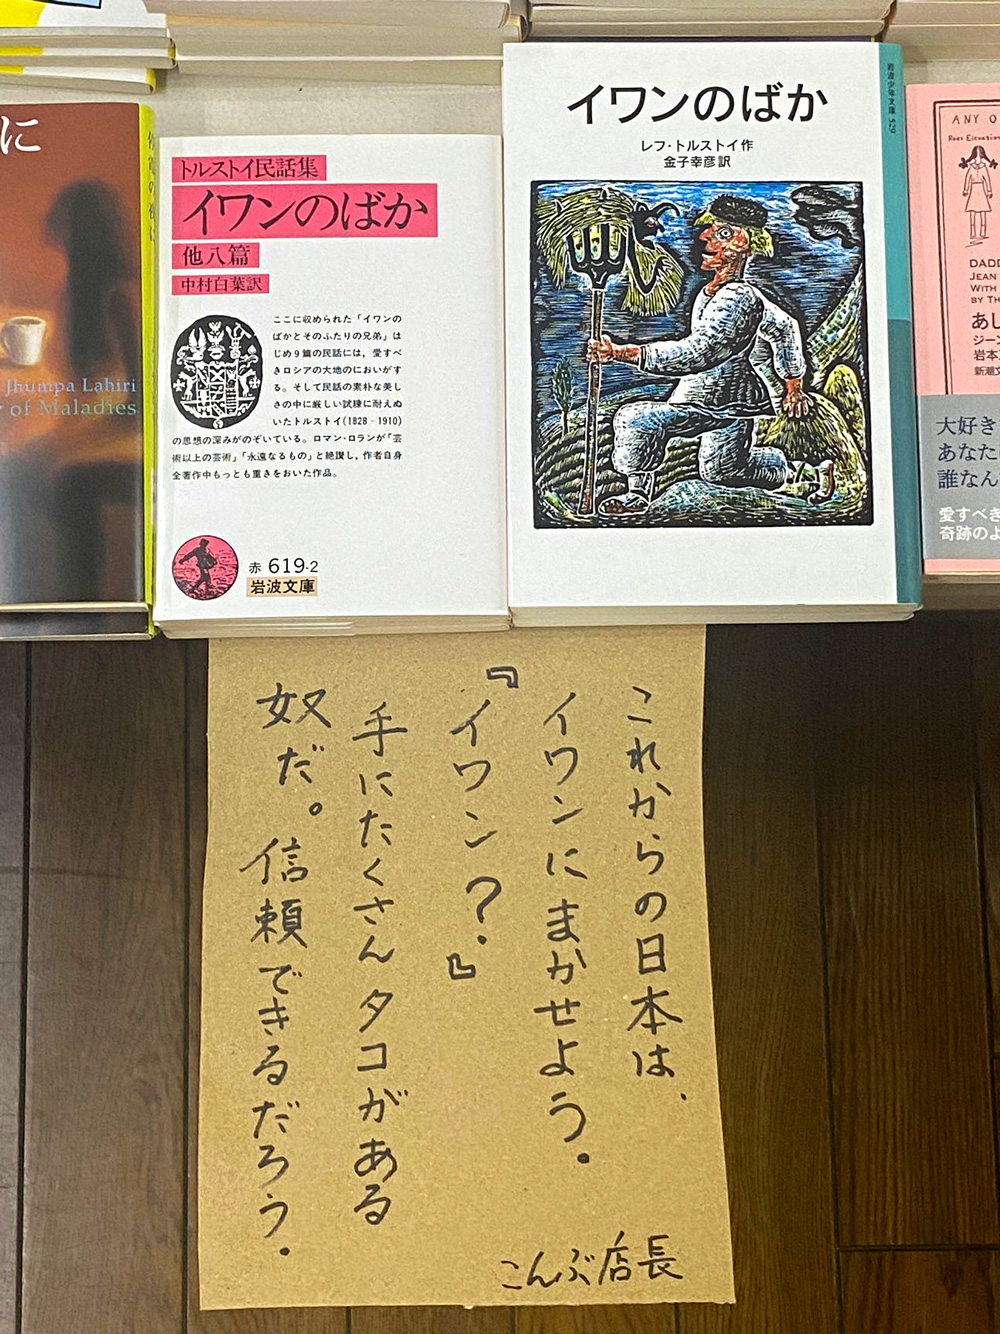 に
Jhumpa Lahiri
of Maladies
トルストイ民話集
イワンのばか
他八篇
中村白葉訳
ここに収められた「イワンの
ばかとそのふたりの兄弟」は
じめ9篇の民話には，愛すべ
きロシアの大地のにおいがす
る。そして民話の素朴な美し
さの中に厳しい試練に耐えぬ
いたトルストイ(1828‐1910)
の思想の深みがのぞいている。ロマン・ロランが「芸
術以上の芸術」「永遠なるもの」と絶讃し，作者自身
全著作中もっとも重きをおいた作品。
赤 619-2
岩波文庫
イワンのばか
レフ・トルストイ作
金子幸彦訳
岩波少年文庫 529
ANY O
DADD
JEAN
WITH
BY TH
あし
ジーン
岩本
新潮文
大好き
あなた
誰なん
愛すべき
奇跡のよ
これからの日本は、
イワンにまかせよう。
『イワン？』
手にたくさんタコがある
奴だ。信頼できるだろう。
こんぶ店長